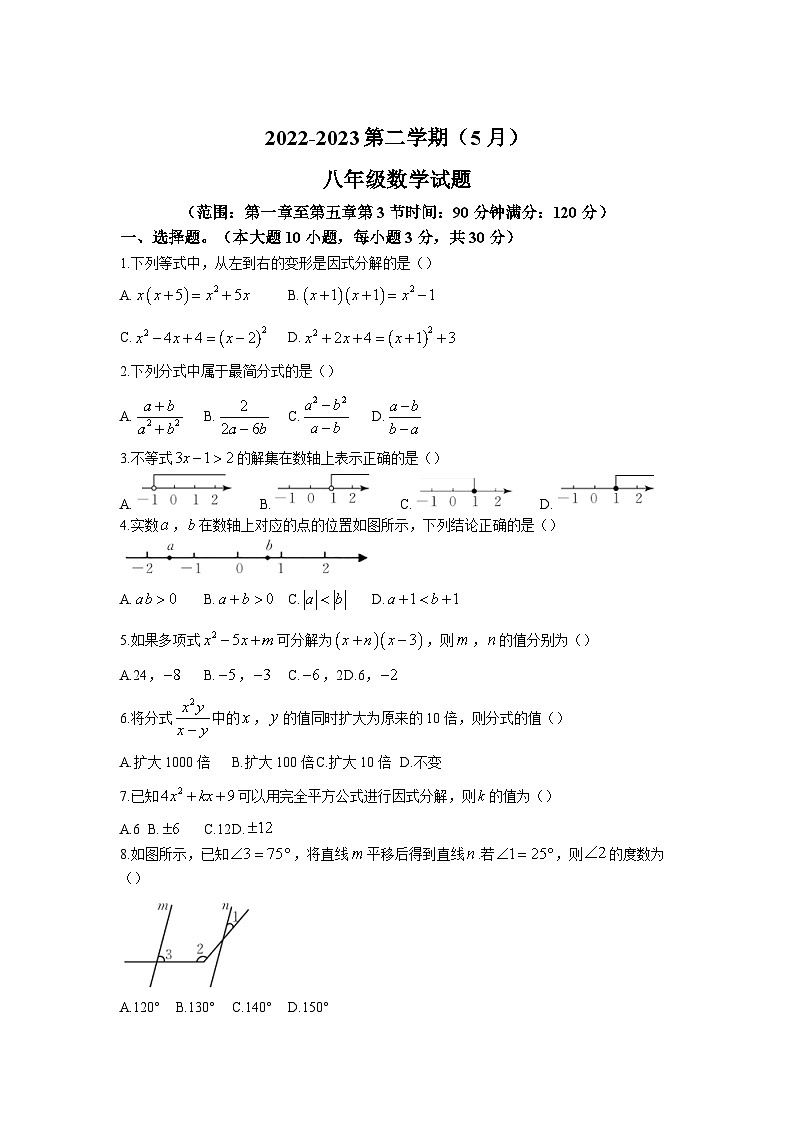 2022-2023第二学期（5月）
八年级数学试题
（范围：第一章至第五章第3节时间：90分钟满分：120分）
一、选择题。（本大题10小题，每小题3分，共30分）
1.下列等式中，从左到右的变形是因式分解的是()
A. x(x+5)=x²+5x B. (x+1)(x+1)=x²−1
C. x²−4x+4=(x−2)² D. x²+2x+4=(x+1)²+3
2.下列分式中属于最简分式的是()
A. (a+b)/(a²+b²) B. 2/(2a−6b) C. (a²−b²)/(a−b) D. (a−b)/(b−a)
3.不等式3x−1>2的解集在数轴上表示正确的是()
A. −1 0 1 2 B. −1 0 1 2 C. −1 0 1 2 D. −1 0 1 2
4.实数a，b在数轴上对应的点的位置如图所示，下列结论正确的是()
a b
−2 −1 0 1 2
A. ab>0 B. a+b>0 C. |a|<|b| D. a+1<b+1
5.如果多项式x²−5x+m可分解为(x+n)(x−3)，则m，n的值分别为()
A.24，−8 B. −5，−3 C. −6，2D.6，−2
6.将分式 x²y/(x−y) 中的x，y的值同时扩大为原来的10倍，则分式的值()
A.扩大1000倍 B.扩大100倍C.扩大10倍 D.不变
7.已知4x²+kx+9可以用完全平方公式进行因式分解，则k的值为()
A.6 B. ±6 C.12D. ±12
8.如图所示，已知∠3=75°，将直线m平移后得到直线n.若∠1=25°，则∠2的度数为
()
m n
1
3 2
A.120° B.130° C.140° D.150°